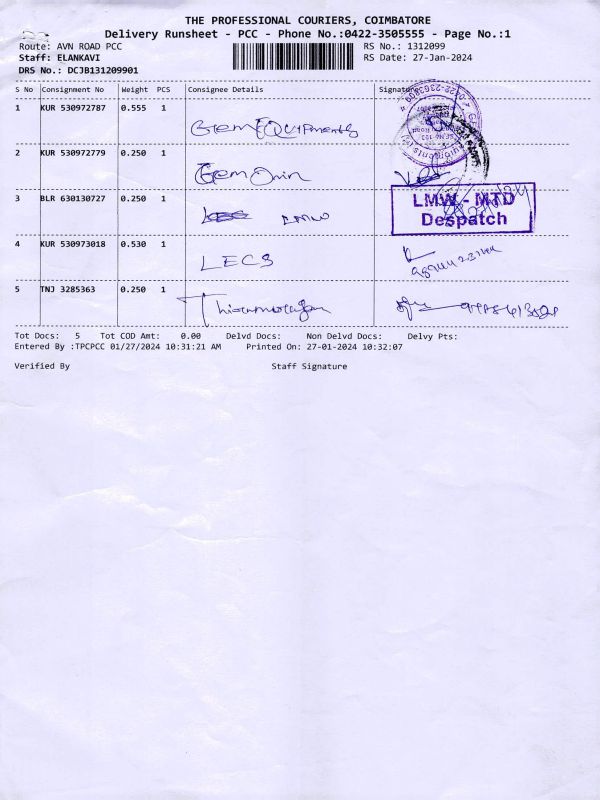 THE PROFESSIONAL COURIERS, COIMBATORE
Delivery Runsheet - PCC - Phone No.:0422-3505555 - Page No.:1
Route: AVN ROAD PCC RS No.: 1312099
Staff: ELANKAVI RS Date: 27-Jan-2024
DRS No.: DCJB131209901
S No Consignment No Weight PCS Consignee Details Signature
1 KUR 530972787 0.555 1 Gem EQUIPments
2 KUR 530972779 0.250 1 Gem
3 BLR 630130727 0.250 1 LMW
LMW - MTD
Despatch
4 KUR 530973018 0.530 1 LECS
5 TNJ 3285363 0.250 1
Tot Docs: 5 Tot COD Amt: 0.00 Delvd Docs: Non Delvd Docs: Delvy Pts:
Entered By :TPCPCC 01/27/2024 10:31:21 AM Printed On: 27-01-2024 10:32:07
Verified By Staff Signature